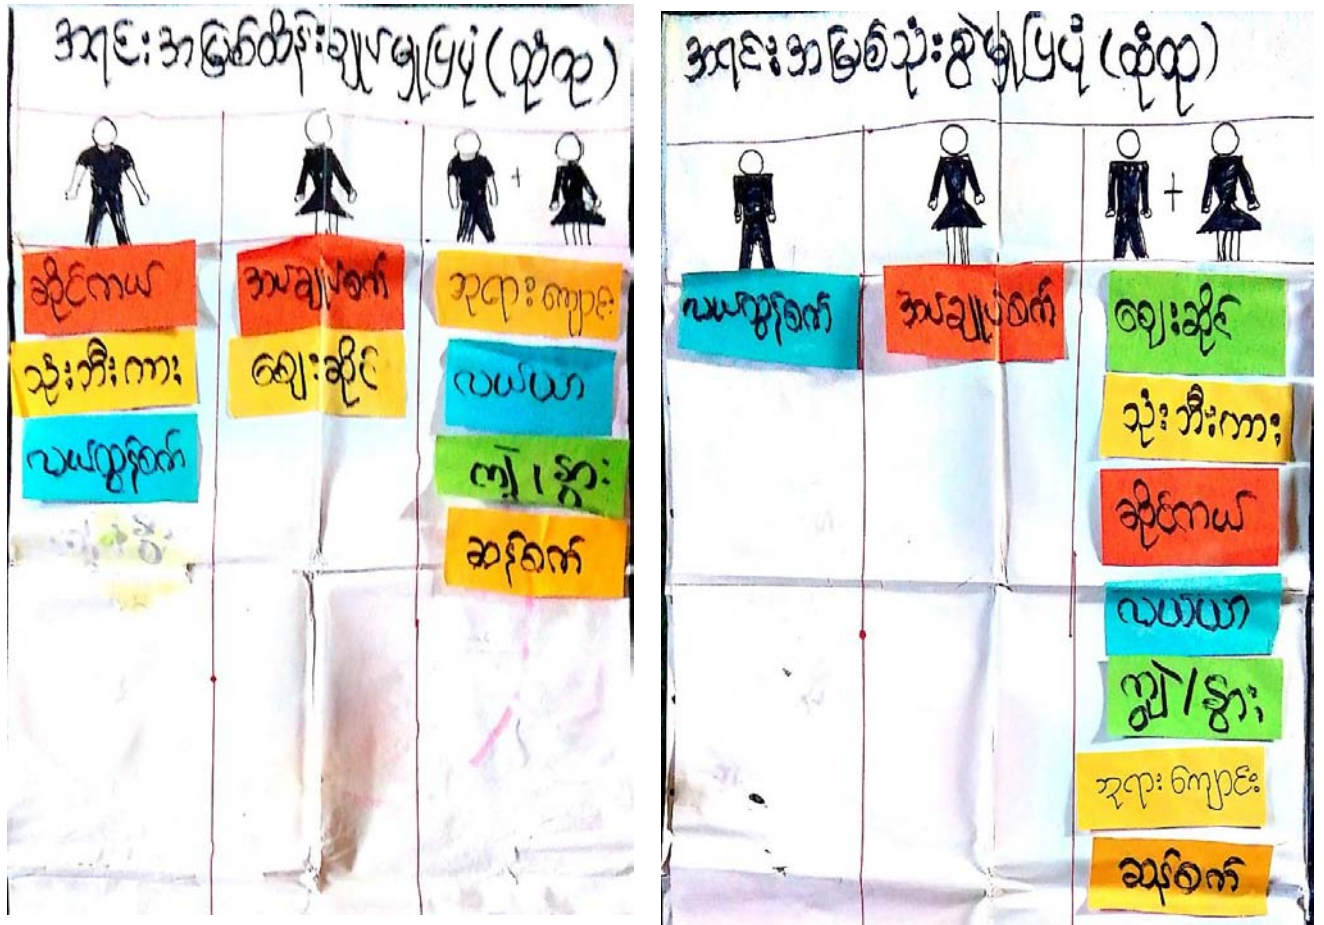 အရင်းအမြစ်ထိန်းချုပ်မှုပြပုံ (ထိုထု)
ဆိုင်ကယ်
သုံးဘီးကား
လယ်ထွန်စက်
အပ်ချုပ်စက်
ဈေးဆိုင်
ဘုရားကျောင်း
လယ်ယာ
ကျွဲ / နွား
ဆန်စက်
အရင်းအမြစ်သုံးစွဲမှုပြပုံ (ထိုထု)
လယ်ထွန်စက်
အပ်ချုပ်စက်
ဈေးဆိုင်
သုံးဘီးကား
ဆိုင်ကယ်
လယ်ယာ
ကျွဲ / နွား
ဘုရားကျောင်း
ဆန်စက်